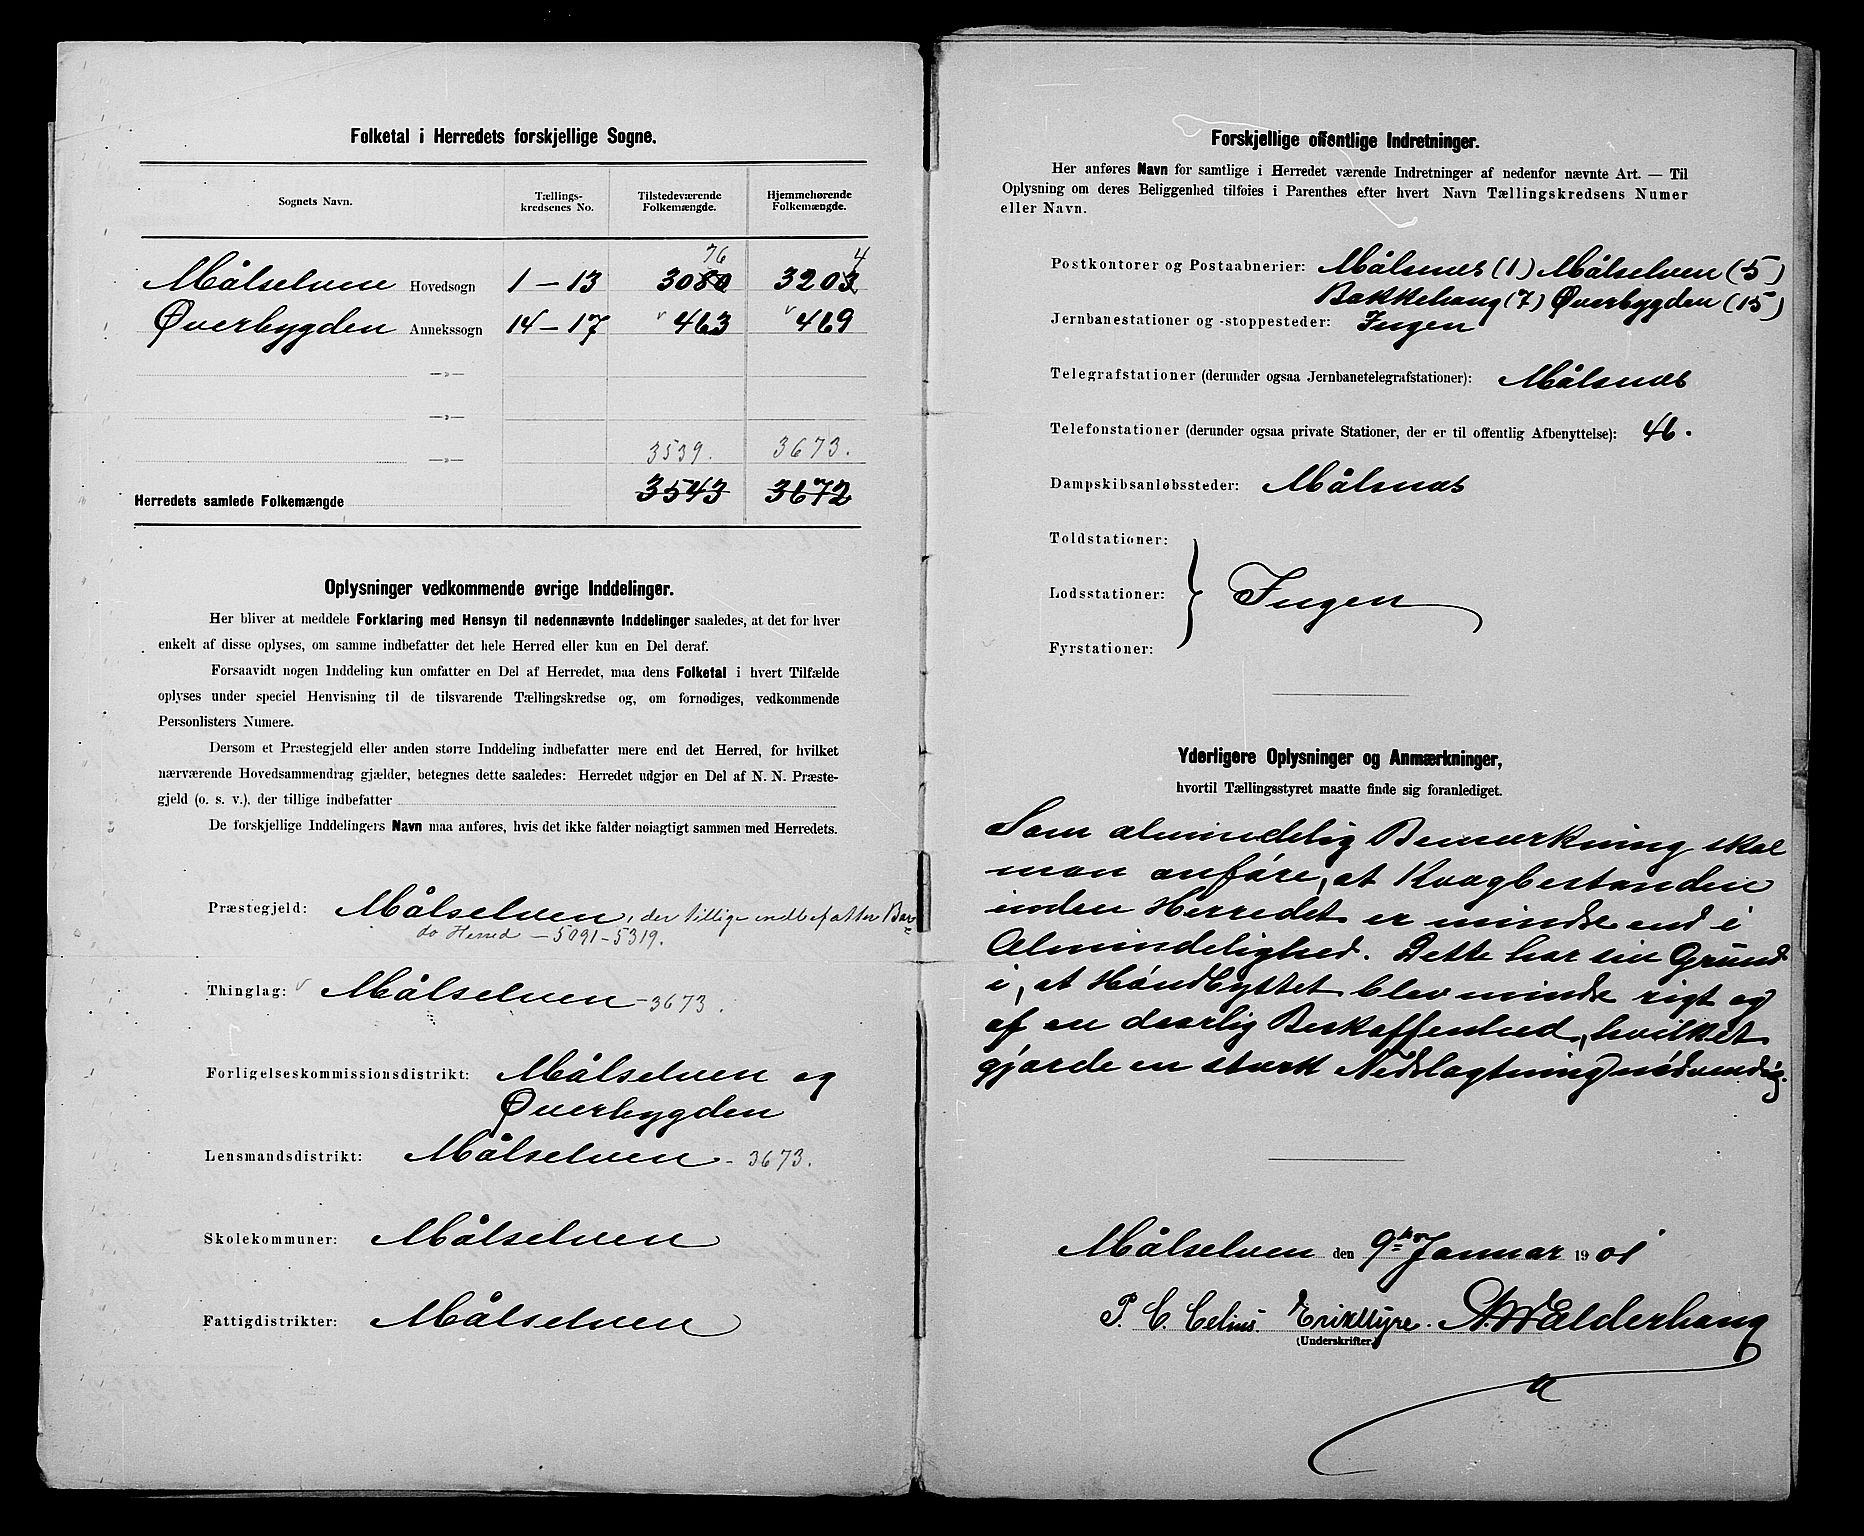 Folketal i Herredets forskjellige Sogne.
Sognets Navn. Tællings-kredsenes No. Tilstedeværende Folkemængde. Hjemmehørende Folkemængde.
76 4
Målselven Hovedsogn 1 – 13 3080 3203
Øverbygden Annekssogn 14 – 17 463 469
—»—
—»—
—»— 3539. 3673.
Herredets samlede Folkemængde 3543 3672
Oplysninger vedkommende øvrige Inddelinger.
Her bliver at meddele Forklaring med Hensyn til nedennævnte Inddelinger saaledes, at det for hver
enkelt af disse oplyses, om samme indbefatter det hele Herred eller kun en Del deraf.
Forsaavidt nogen Inddeling kun omfatter en Del af Herredet, maa dens Folketal i hvert Tilfælde
oplyses under speciel Henvisning til de tilsvarende Tællingskredse og, om fornødiges, vedkommende
Personlisters Numere.
Dersom et Præstegjeld eller anden større Inddeling indbefatter mere end det Herred, for hvilket
nærværende Hovedsammendrag gjælder, betegnes dette saaledes: Herredet udgjør en Del af N. N. Præste-
gjeld (o. s. v.), der tillige indbefatter
De forskjellige Inddelingers Navn maa anføres, hvis det ikke falder nøiagtigt sammen med Herredets.
Præstegjeld: Målselven, der tillige indbefatter Bar-
do Herred – 5091 – 5319.
Thinglag: Målselven – 3673.
Forligelseskommissionsdistrikt: Målselven og
Øverbygden
Lensmandsdistrikt: Målselven – 3673.
Skolekommuner: Målselven
Fattigdistrikter: Målselven
Forskjellige offentlige Indretninger.
Her anføres Navn for samtlige i Herredet værende Indretninger af nedenfor nævnte Art. — Til
Oplysning om deres Beliggenhed tilføies i Parenthes efter hvert Navn Tællingskredsens Numer
eller Navn.
Postkontorer og Postaabnerier: Målsnes (1) Målselven (5)
Bakkehaug (7) Øverbygden (15)
Jernbanestationer og -stoppesteder: Ingen
Telegrafstationer (derunder ogsaa Jernbanetelegrafstationer): Målsnes
Telefonstationer (derunder ogsaa private Stationer, der er til offentlig Afbenyttelse): 46.
Dampskibsanløbssteder: Målsnes
Toldstationer:
Lodsstationer: Ingen
Fyrstationer:
Yderligere Oplysninger og Anmærkninger,
hvortil Tællingsstyret maatte finde sig foranlediget.
Som almindelig Bemærkning skal
man anføre, at Kvægbestanden
inden Herredet er mindre end i
Almindelighed. Dette har sin Grund
i, at Høudbyttet blev mindre rigt og
af en daarlig Beskaffenhed, hvilket
gjorde en stærk Nedslagtning nødvendig.
Målselven den 9de Januar 1901
P. C. Celius. Erik Myre. Walderhaug
(Underskrifter)